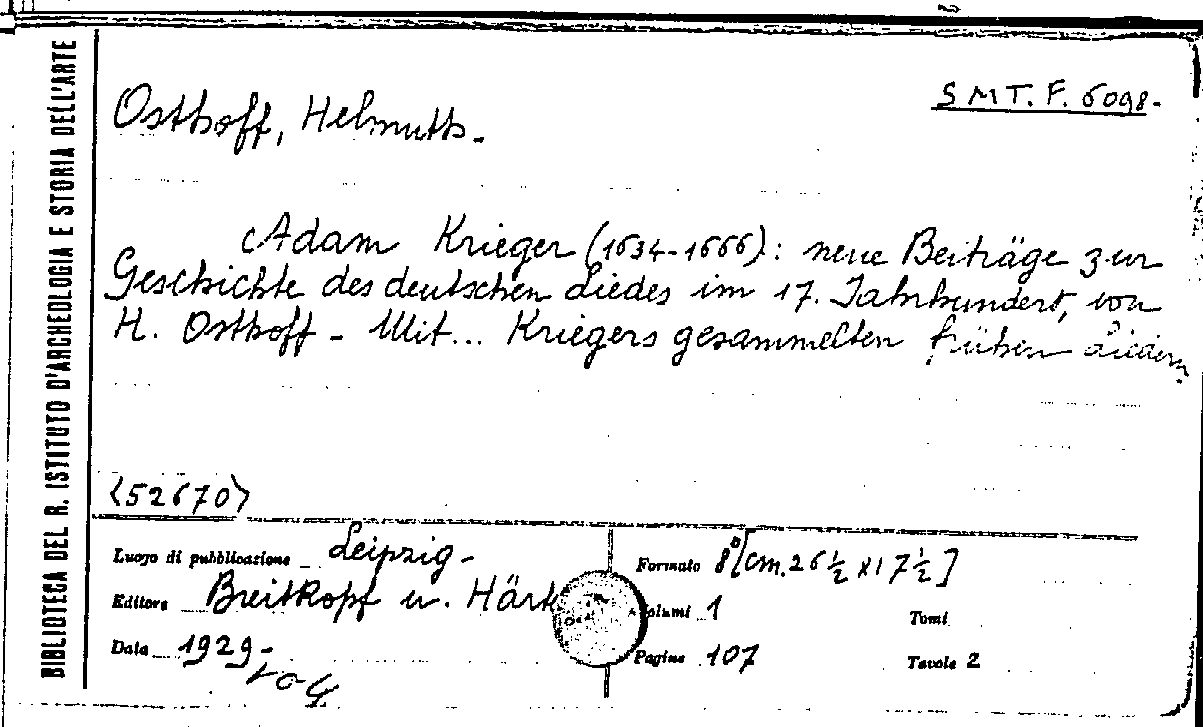 BIBLIOTECA DEL R. ISTITUTO D'ARCHEOLOGIA E STORIA DELL'ARTE
S.M.T. F. 6098-
Osthoff, Helmuth-
Adam Krieger (1634-1666): neue Beiträge zur
Geschichte des deutschen Liedes im 17. Jahrhundert, von
H. Osthoff - Mit... Kriegers gesammelten frühen Liedern.
<52670>
Luogo di pubblicazione Leipzig-
Editore Breitkopf u. Härt
Data 1929-
Formato 8°[cm. 26 ½ x 17 ½]
Volumi 1 Tomi
Pagine 107 Tavole 2